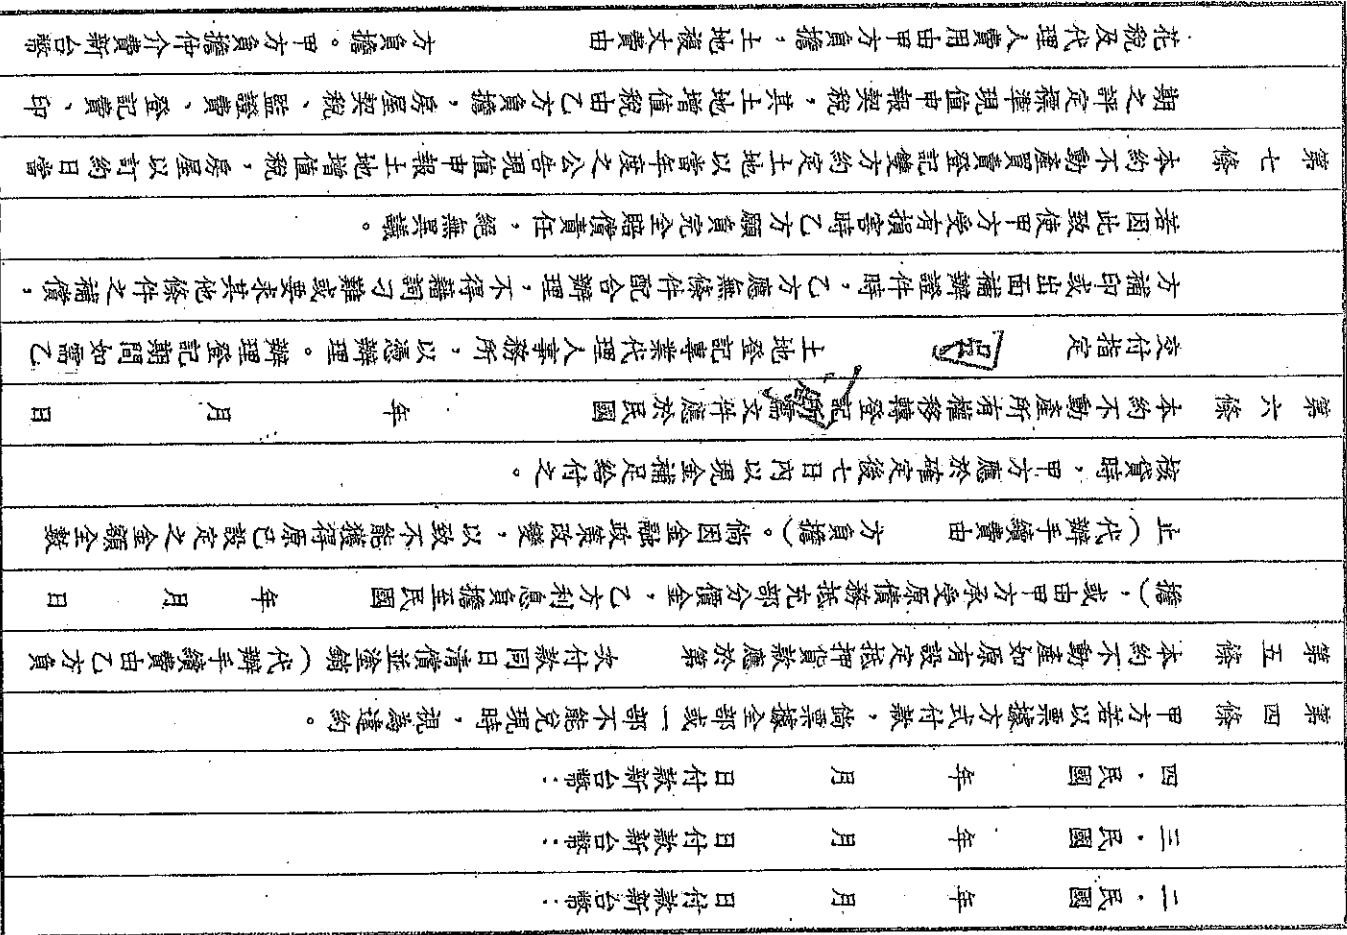 二．民國　年　月　日付款新台幣：
三．民國　年　月　日付款新台幣：
四．民國　年　月　日付款新台幣：
第四條　甲方若以票據方式付款，倘票據全部或一部不能兌現時，視為違約。
第五條　本約不動產如原有設定抵押貸款應於第　次付款同日清償並塗銷（代辦手續費由乙方負
擔），或由甲方承受原債務抵充部分價金，乙方利息負擔至民國　年　月　日
止（代辦手續費由　方負擔）。倘因金融政策改變，以致不能獲得原已設定之金額全數
核貸時，甲方應於確定後七日內以現金補足給付之。
第六條　本約不動產所有權移轉登記所需文件應於民國　年　月　日
交付指定　土地登記專業代理人事務所，以憑辦理。辦理登記期間如需乙
方補印或出面補辦證件時，乙方應無條件配合辦理，不得藉詞刁難或要求其他條件之補償，
若因此致使甲方受有損害時乙方願負完全賠償責任，絕無異議。
第七條　本約不動產買賣登記雙方約定土地以當年度之公告現值申報土地增值稅，房屋以訂約日當
期之評定標準現值申報契稅，其土地增值稅由乙方負擔，房屋契稅、監證費、登記費、印
花稅及代理人費用由甲方負擔，土地複丈費由　方負擔。甲方負擔仲介費新台幣